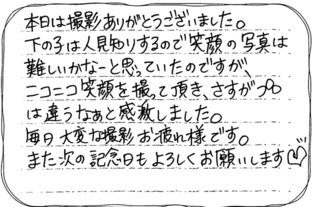 本日は撮影ありがとうございました。
下の子は人見知りするので笑顔の写真は
難しいかなーと思っていたのですが、
ニコニコ笑顔を撮って頂き、さすがプロ
は違うなぁと感激しました。
毎日大変な撮影お疲れ様です。
また次の記念日もよろしくお願いします♡